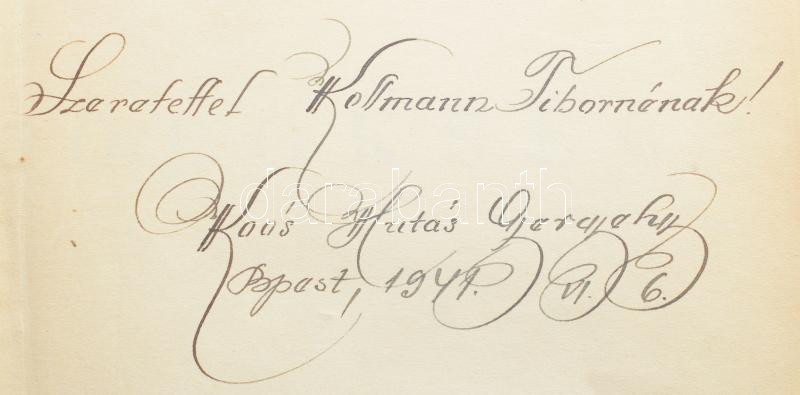 Szeretettel Kollmann Tibornénak!
Koós Hutás Gergely
Bpest, 1941. VI. 6.
darabanth